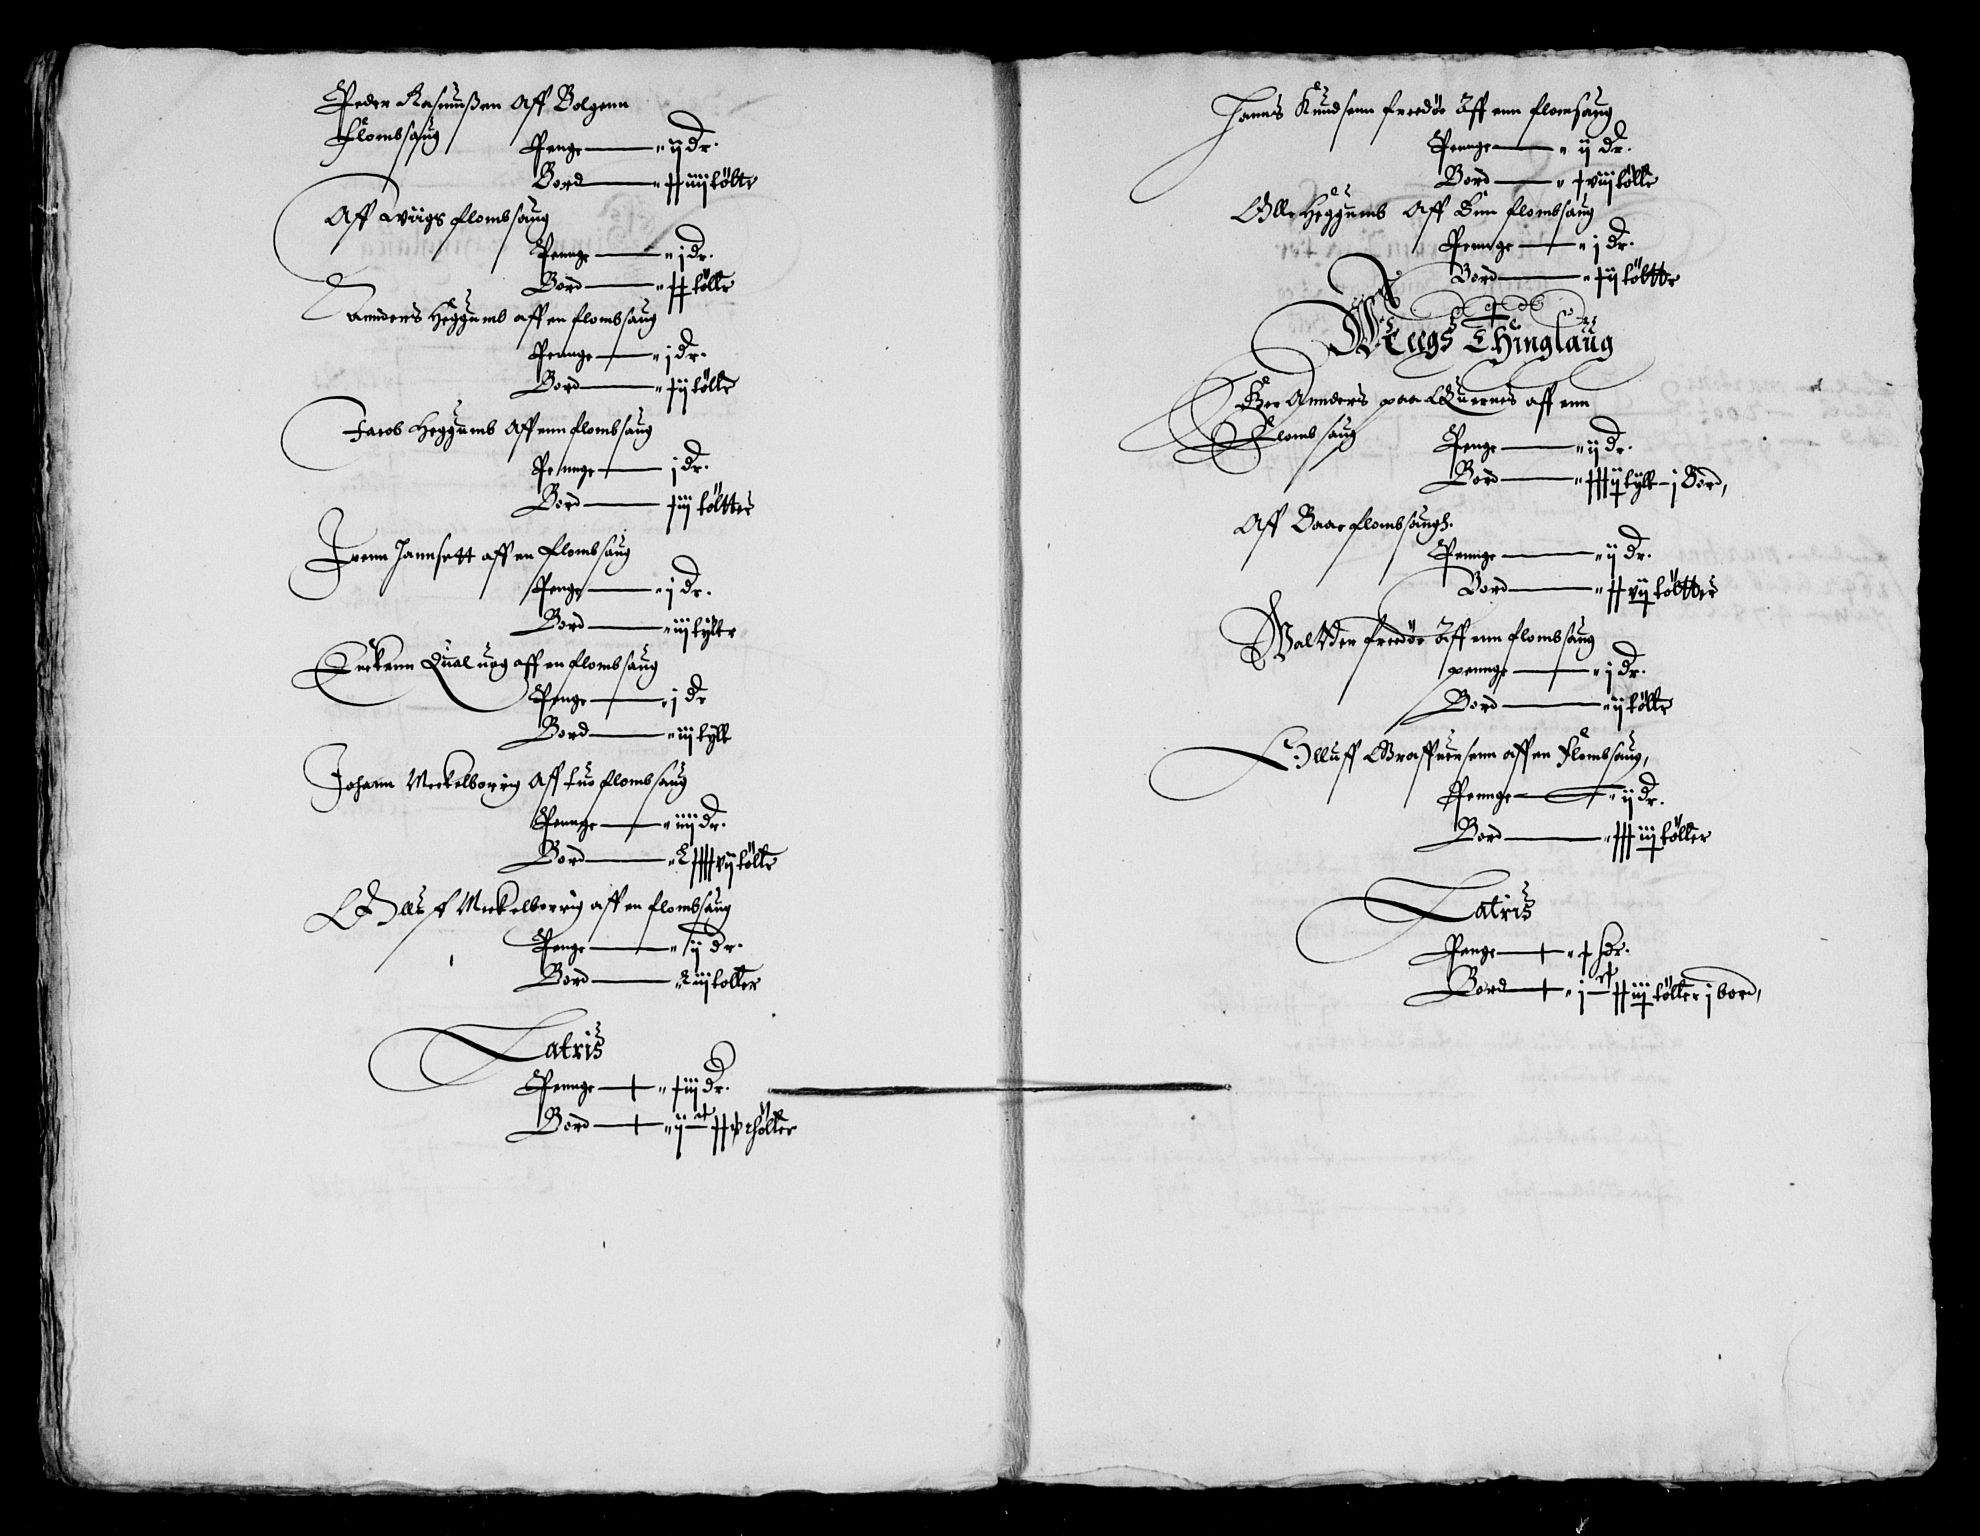 Peder Rasmußen Aff Bolgenn
Flombsaug
Penge — ij dr.
Bord — xxiiij tølte
Aff Wiigs flombsaug
Pennge — j dr.
Bord — xx tølte
Annders Heggumb aff en flombsaug
Pennge — j dr.
Bord — xij tølte
Jacob Heggumb Aff enn flombsaug
Pennge — j dr.
Bord — xiij tøltter
Ivenn Jannsett aff en flombsaug
Penge — j dr.
Bord — iiij tylte
aff en flombsaug
Penge — j dr
Bord — iiij tylt
Johann Meckelborrig Aff tuo flombsaug
Pennge — iiij dr.
Bord — vij tølte
Olluff Meckelborrig aff en flombsaug
Penge — ij dr.
Bord — tolter
Latris
Pennge — xiij dr.
Bord — thølter
Hanns Knudsenn freedøe Aff enn flombsaug
Pennge — ij dr.
Bord — xviij tølte
Olle Heggumb Aff Enn flombsaug
Pennge — j dr.
Bord — xij tøltte
Thinglaug
Her Annders paa Quernes aff enn
Flombsaug
Penge — ij dr.
Bord — tylt j Bord,
Aff Baar flombsaugh.
Pennge — ij dr.
Bord — tøltter
Waltter freedøe Aff enn flombsaug
pennge — j dr.
Bord — ij tølte
Olluff Graffversenn aff en Flombsaug,
Pennge — ij dr.
Bord — tølter
Latris
Penge — x dr.
Bord — tølter j bord,